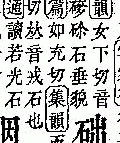 韻女下切音
石垂貌
篇如充切集韻
切𠀤音戎石也
適讀若光石